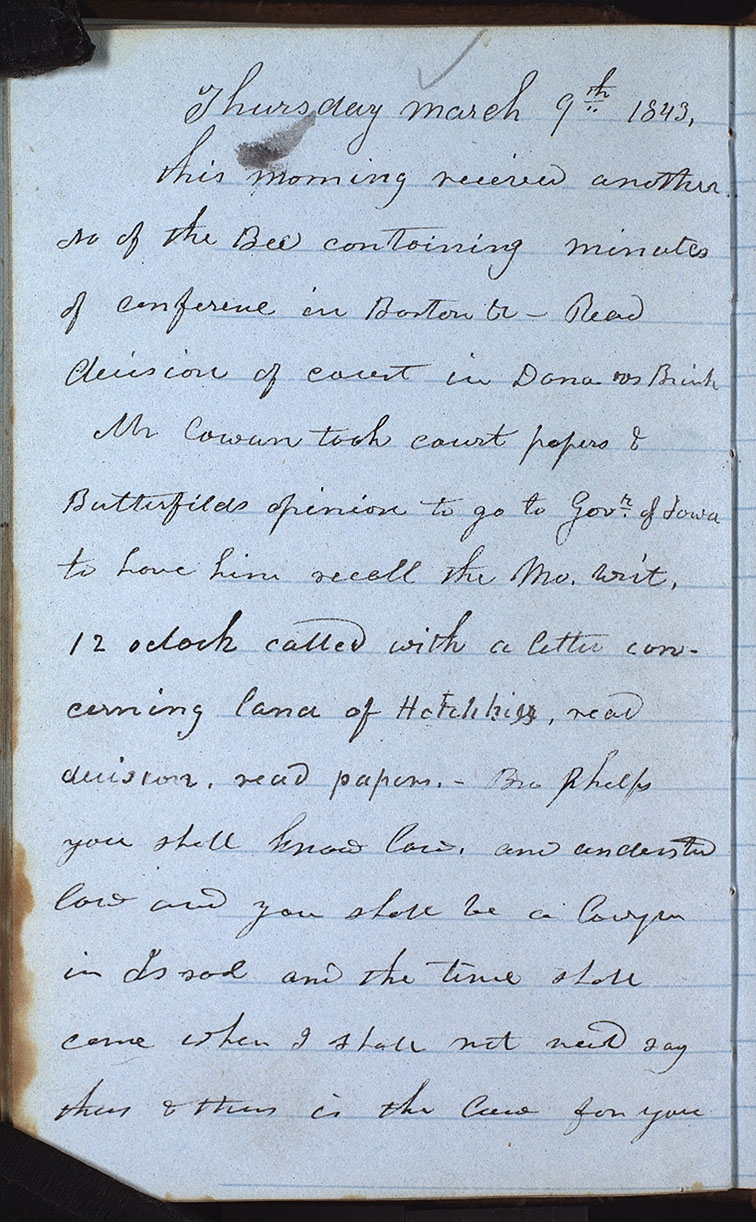 Thursday march 9th 1843,
this morning recieved another
no of the Bee containing minutes
of conference in Boston &c – Read
decision of court in Dana vs Brink
Mr Cowan took court papers &
Butterfilds opinion to go to Govr. of Iowa
to have him recall the Mo. writ,
12 oclock called with a letter con-
cerning land of Hotchkiss, read
decision. read papers. – Bro Phelps
you shall know law, and understd
law and you shall be a lawyer
in Israel and the time shall
come when I shall not need say
thus & thus is the law for you